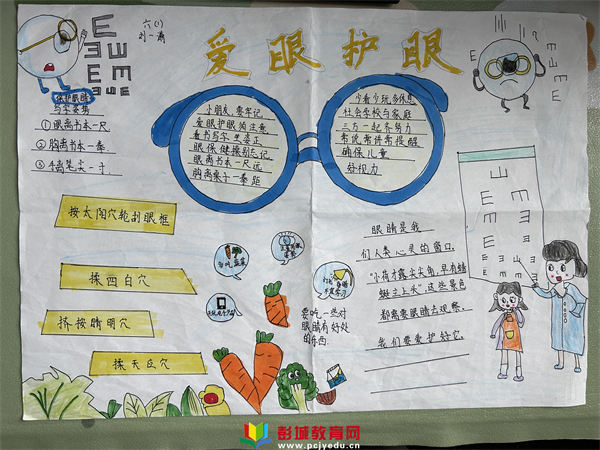 六(1)
爱眼护眼
保护眼睛
写字姿势
①眼离书本一尺
②胸离书本一拳
③手离笔尖一寸
小朋友,要牢记,
爱眼护眼的注意
看书写字坐姿正
眼保健操别忘记
眼离书本一尺远
胸离桌子一拳距
少看少玩多休息
社会学校与家庭
三方一起齐努力
常说常讲常提醒
确保儿童
好视力
按太阳穴轮刮眼框
揉四白穴
挤按睛明穴
揉天应穴
要吃一些对
眼睛有好处
的东西.
眼睛是我
们人类心灵的窗口,
"小荷才露尖尖角,早有蜻
蜓立上头",这些景色
都需要眼睛去观察,
我们要爱护好它。
E
E
E
m
E
彭城教育网
www.pcjyedu.cn